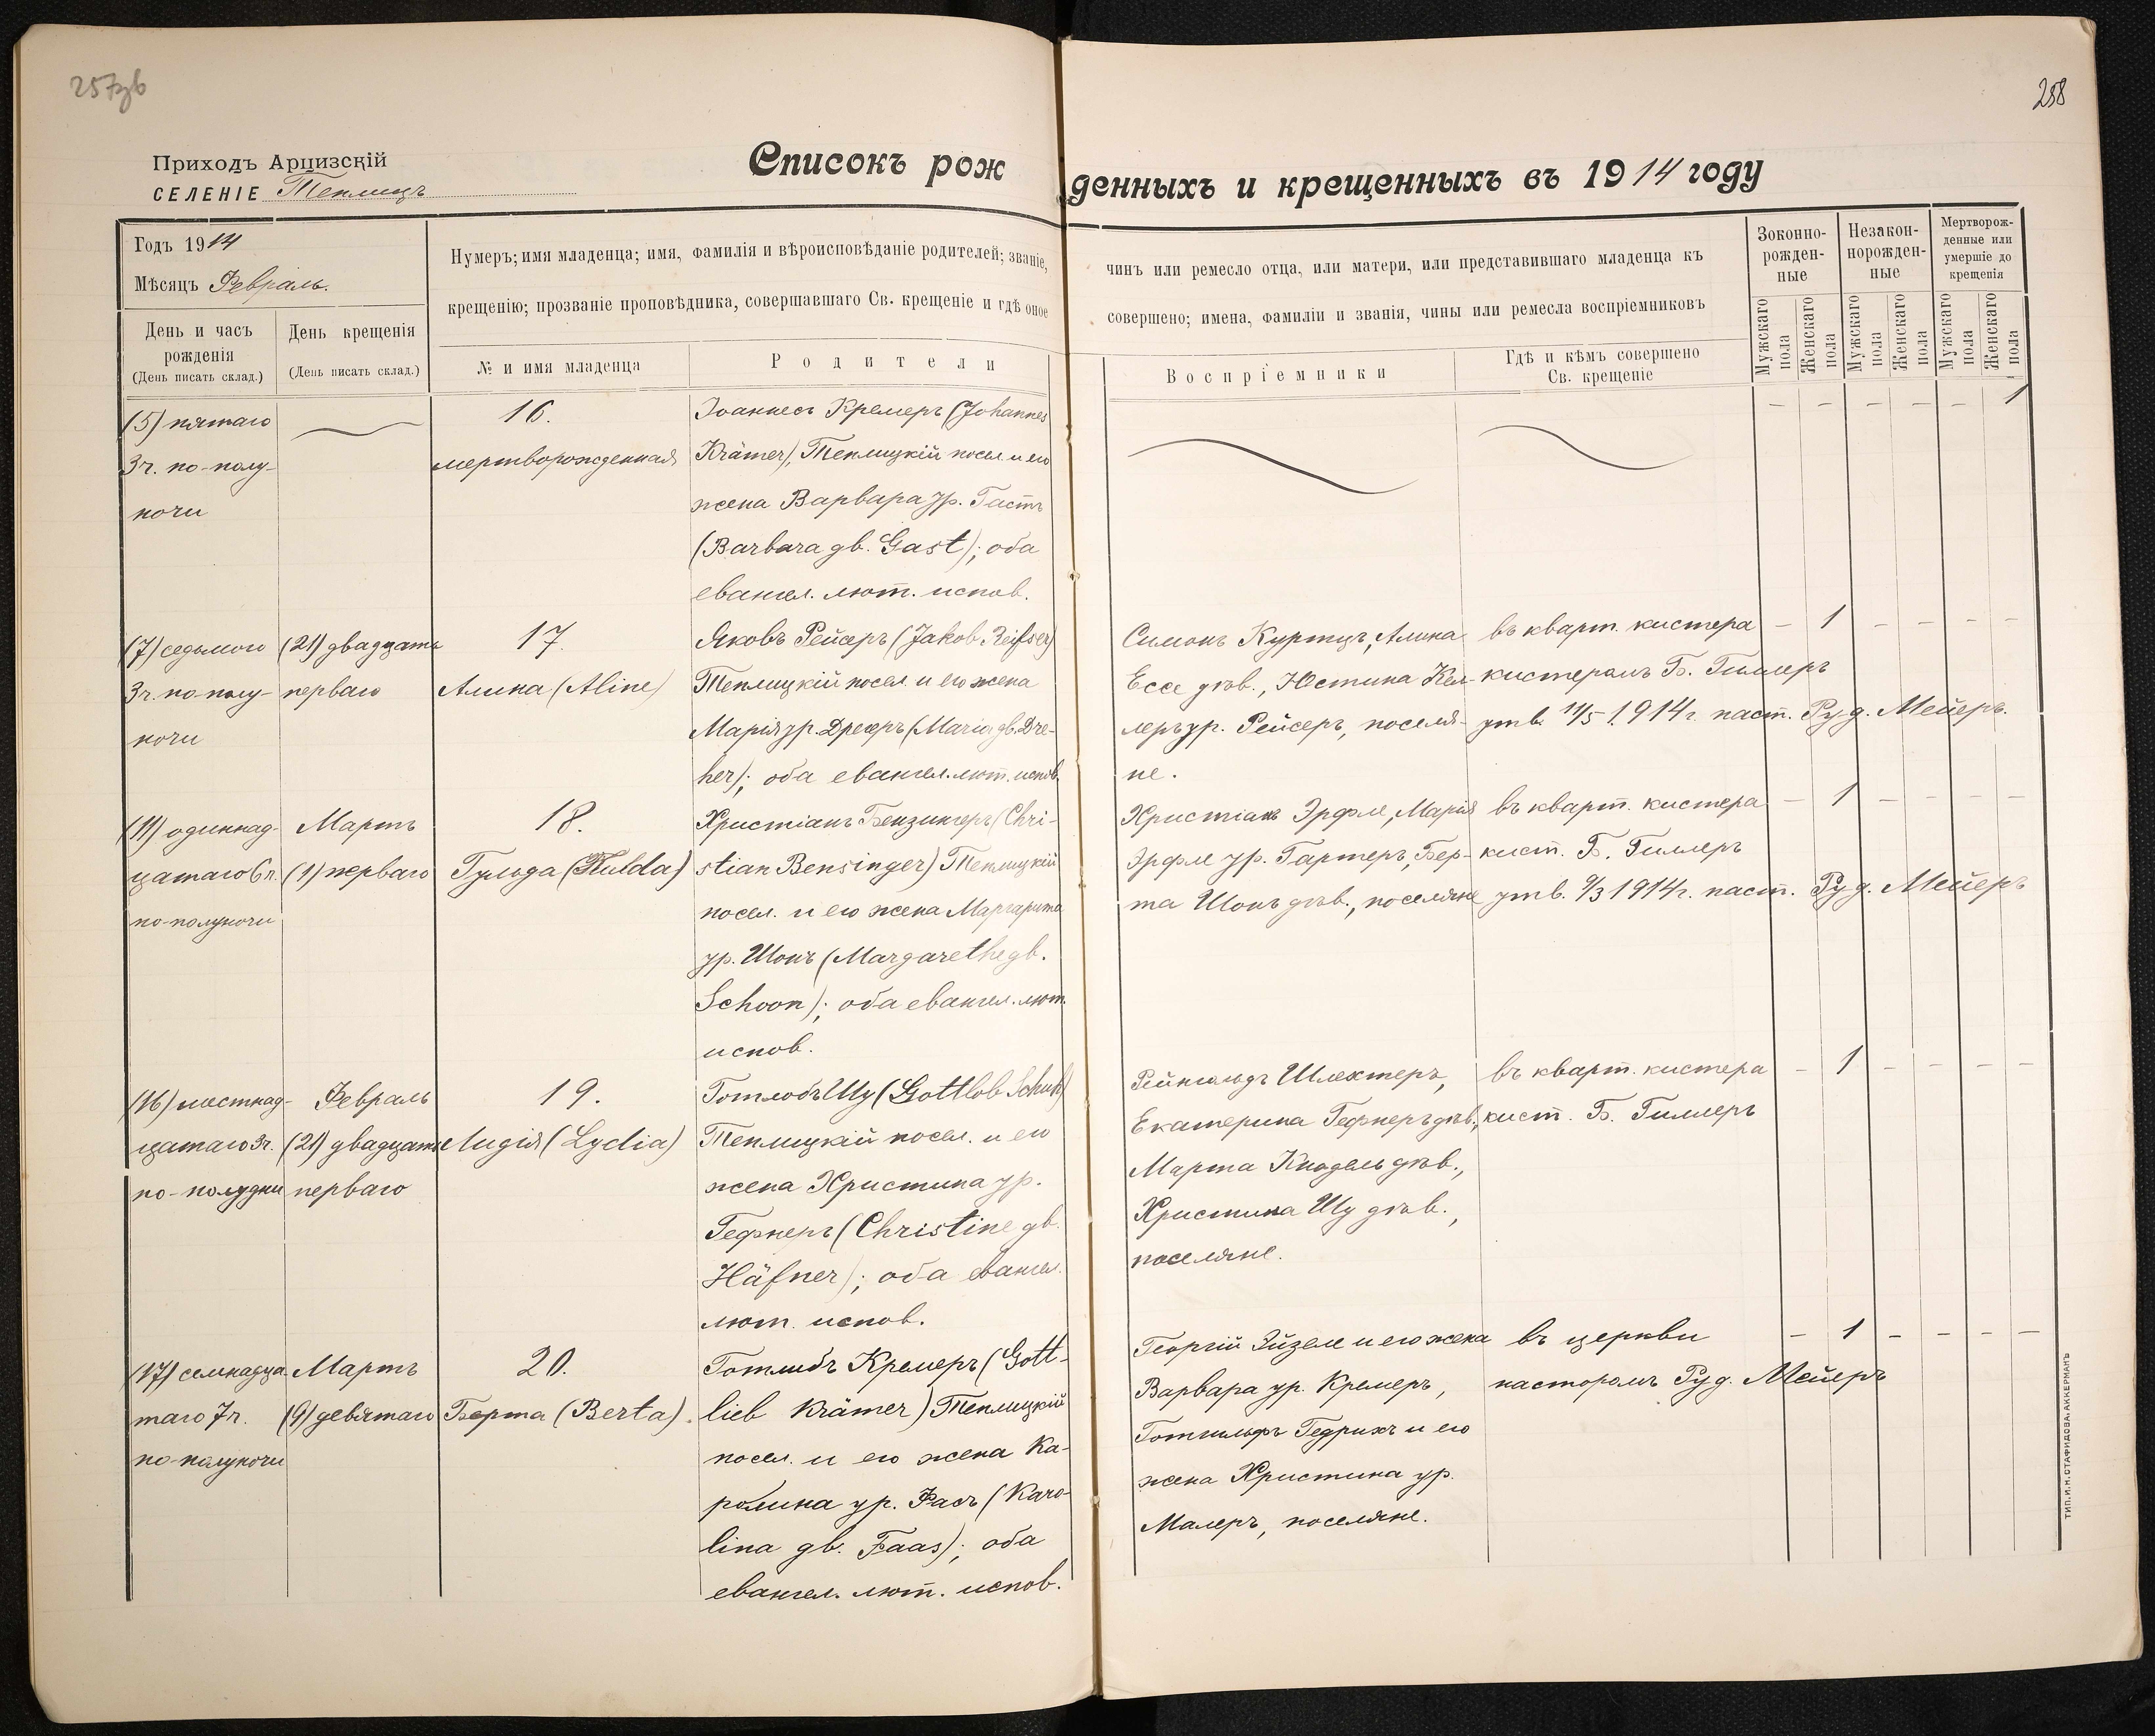 257зв
258
Приходъ Арцизскій
СЕЛЕНІЕ Теплицъ
Списокъ рожденныхъ и крещенныхъ въ 1914 году
Годъ 1914
Мѣсяцъ Февраль.
День и часъ рожденія
(День писать склад.)
День крещенія
(День писать склад.)
Нумеръ; имя младенца; имя, фамилія и вѣроисповѣданіе родителей; званіе,
крещенію; прозваніе проповѣдника, совершавшаго Св. крещеніе и гдѣ оное
№ и имя младенца
Родители
чинъ или ремесло отца, или матери, или представившаго младенца къ
совершено; имена, фамиліи и званія, чины или ремесла воспріемниковъ
Воспріемники
Гдѣ и кѣмъ совершено
Св. крещеніе
Зоконно-
рожден-
ные
Незакон-
норожден-
ные
Мертворож-
денные или
умершіе до
крещенія
Мужскаго пола
Женскаго пола
Мужскаго пола
Женскаго пола
Мужскаго пола
Женскаго пола
(5) пятаго
3 ч. по-полу-
ночи
16.
мертворожденная
Іоаннесъ Кремеръ (Johannes
Krämer), Теплицкій посел. и его
жена Варвара ур. Гастъ
(Barbara gb. Gast); оба
евангел. лют. испов.
— — — — — 1
(7) седьмого
3 ч. по-полу-
ночи
(21) двадцать
перваго
17.
Алина (Aline)
Яковъ Рейсеръ (Jakob Reißer)
Теплицкій посел. и его жена
Марія ур. Дрееръ (Maria gb. Dre-
her); оба евангел. лют. испов.
Симонъ Куртцъ, Алина
Ессе дѣв., Юстина Кел-
леръ ур. Рейсеръ, поселя-
не.
въ кварт. кистера
кистеромъ Б. Гиллеръ
утв. 11/5 1914 г. паст. Руд. Мейеръ.
— 1 — — — —
(11) одиннад-
цатаго 6 ч.
по-полуночи
Мартъ
(1) перваго
18.
Гульда (Hulda)
Христіанъ Бензингеръ (Chri-
stian Bensinger) Теплицкій
посел. и его жена Маргарита
ур. Шонъ (Margarethe gb.
Schoon); оба евангел. лют.
испов.
Христіанъ Эрфле, Марія
Эрфле ур. Гартеръ, Бер-
та Шонъ дѣв., поселяне
въ кварт. кистера
кист. Б. Гиллеръ
утв. 9/3 1914 г. паст. Руд. Мейеръ
— 1 — — — —
(16) шестнад-
цатаго 3 ч.
по-полудни
Февраль
(21) двадцать
перваго
19.
Лидія (Lydia)
Готлобъ Шу (Gottlob Schuh)
Теплицкій посел. и его
жена Христина ур.
Гефнеръ (Christine gb.
Häfner); оба евангел.
лют. испов.
Рейнгольдъ Шлехтеръ,
Екатерина Гефнеръ дѣв.,
Марта Кнодель дѣв.,
Христина Шу дѣв.,
поселяне.
въ кварт. кистера
кист. Б. Гиллеръ
— 1 — — — —
(17) семнадца-
таго 7 ч.
по-полуночи
Мартъ
(9) девятаго
20.
Берта (Berta).
Готлибъ Кремеръ (Gott-
lieb Krämer) Теплицкій
посел. и его жена Ка-
ролина ур. Фасъ (Karo-
lina gb. Faas); оба
евангел. лют. испов.
Георгій Эйзеле и его жена
Варвара ур. Кремеръ,
Готгильфъ Гедрихъ и его
жена Христина ур.
Малеръ, поселяне.
въ церкви
пасторомъ Руд. Мейеръ
— 1 — — — —
ТИП. И. Н. СТАФИДОВА, АККЕРМАНЪ